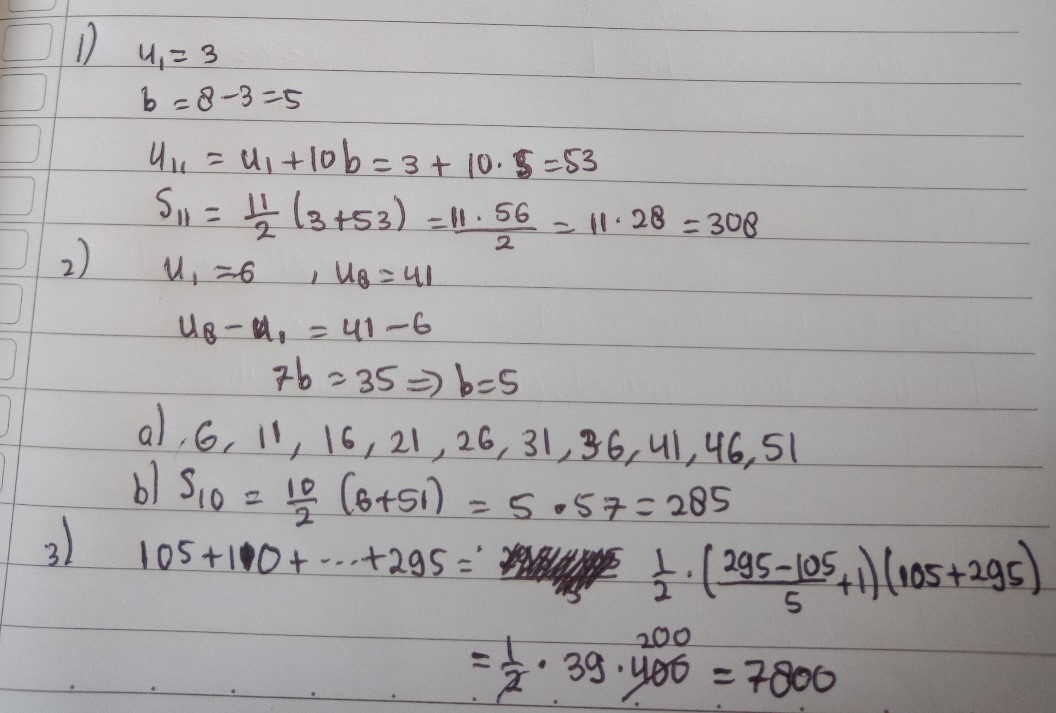 1) u₁ = 3
b = 8 - 3 = 5
u₁₁ = u₁ + 10b = 3 + 10 · 5 = 53
S₁₁ = 11/2 (3+53) = 11 · 56/2 = 11 · 28 = 308
2) u₁ = 6 , u₈ = 41
u₈ - u₁ = 41 - 6
7b = 35 => b = 5
a) 6, 11, 16, 21, 26, 31, 36, 41, 46, 51
b) S₁₀ = 10/2 (6+51) = 5 · 57 = 285
3) 105 + 110 + ... + 295 = 1/2 · (295-105/5 + 1)(105+295)
= 1/2 · 39 · 400 200 = 7800